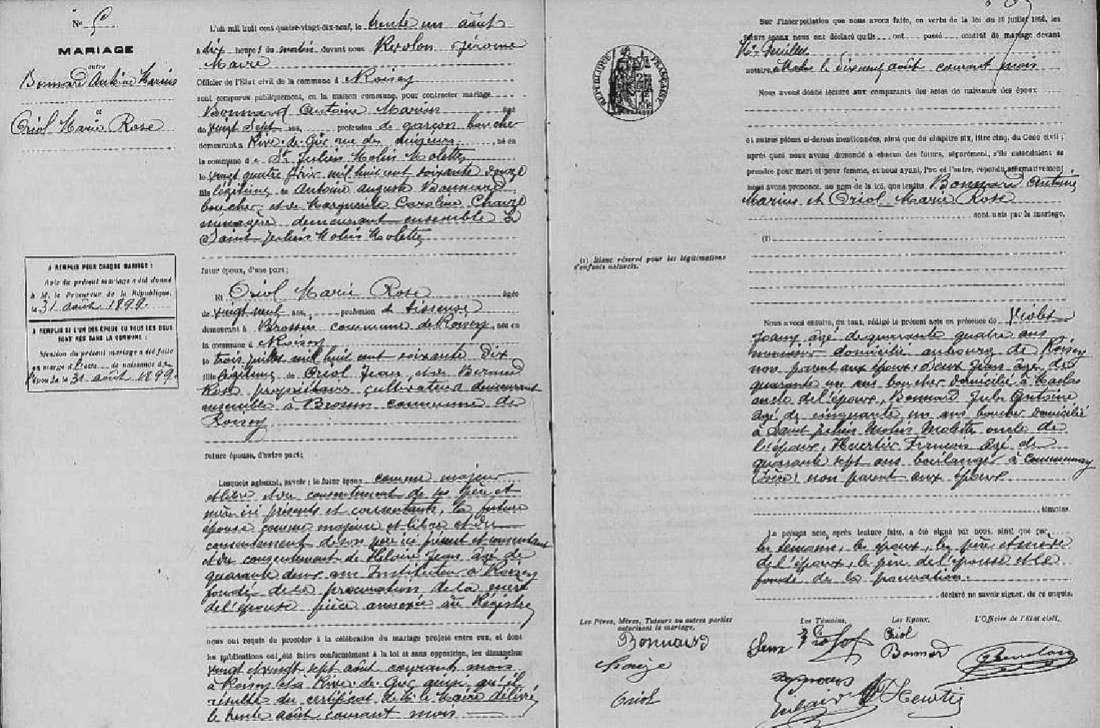 No 5
MARIAGE
entre
Bonnard Antoine Marius
&
Oriol Marie Rose
A REMPLIR POUR CHAQUE MARIAGE :
Avis du présent mariage a été donné
à M. le Procureur de la République,
le 31 août 1899
A REMPLIR SI L'UN DES ÉPOUX OU TOUS LES DEUX
SONT NÉS DANS LA COMMUNE :
Mention du présent mariage a été faite
en marge de l'acte de naissance de
l'épouse le 31 août 1899
L'an mil huit cent quatre-vingt-dix-neuf, le trente un août
à dix heures du matin, devant nous Jérome
Maire
Officier de l'Etat civil de la commune de Roisey
sont comparus publiquement, en la maison commune, pour contracter mariage
Bonnard Antoine Marius âgé
de vingt sept ans, profession de garçon boucher
demeurant à Rive-de-Gier rue des né en
la commune de St Julien Molin Molette
le vingt quatre mil huit cent soixante douze
fils légitime de Antoine Auguste Bonnard
boucher et de Marguerite Caroline Chaize
ménagère demeurant ensemble à
Saint Julien Molin Molette
futur époux, d'une part ;
Et Oriol Marie Rose âgée
de vingt neuf ans, profession de tisseuse
demeurant à Brossin commune de Roisey, née en
la commune de Roisey
le trois juillet mil huit cent soixante dix
fille légitime de Oriol Jean et de
Rose propriétaires cultivateurs demeurant
ensemble à Brossin commune de
Roisey
future épouse, d'autre part ;
Lesquels agissant, savoir : le futur époux comme majeur
et libre et du consentement de ses père et
mère ici présents et consentants, la future
épouse comme majeure et libre et du
consentement de son père ici présent et consentant
et du consentement de Jean âgé de
quarante deux ans Instituteur à Roisey
fondé de la procuration de la mère
de l'épouse pièce annexée au Registre
nous ont requis de procéder à la célébration du mariage projeté entre eux, et dont
les publications ont été faites conformément à la loi et sans opposition, les dimanches
vingt et vingt sept août courant mois
à Roisey et à Rive-de-Gier ainsi qu'il
résulte du certificat de M. le Maire délivré
le trente août courant mois
Sur l'interpellation que nous avons faite, en vertu de la loi du 10 juillet 1850, les
futurs époux nous ont déclaré qu'ils ont passé contrat de mariage devant
Me
notaire, le dix neuf août courant mois
Nous avons donné lecture aux comparants des actes de naissance des époux
et autres pièces ci-dessus mentionnées, ainsi que du chapitre six, titre cinq, du Code civil ;
après quoi nous avons demandé à chacun des futurs, séparément, s'ils entendaient se
prendre pour mari et pour femme, et nous ayant, l'un et l'autre, répondu affirmativement
nous avons prononcé, au nom de la loi, que lesdits Bonnard Antoine
Marius et Oriol Marie Rose
sont unis par le mariage.
(1)
(1) Blanc réservé pour les légitimations
d'enfants naturels.
RÉPUBLIQUE FRANÇAISE
Nous avons ensuite, du tout, rédigé le présent acte en présence de Violet
âgé de quarante quatre ans
domicilié au bourg de Roisey
non parent aux époux, Jean âgé de
quarante un ans boucher domicilié à Maclas
oncle de l'époux, Bonnard Jules Antoine
âgé de cinquante un ans boucher domicilié
à Saint Julien Molin Molette oncle de
l'époux, François âgé de
quarante sept ans boulanger à Communay
(Isère) non parent aux époux.
témoins.
Le présent acte, après lecture faite, a été signé par nous, ainsi que par
les témoins, les époux, les père et mère
de l'époux, le père de l'épouse et le
fondé de la procuration.
déclaré ne savoir signer, de ce enquis.
Les Pères, Mères, Tuteurs ou autres parties
autorisant le mariage,
Les Témoins,
Les Époux,
L'Officier de l'Etat civil,
Bonnard
Chaize
Oriol
Oriol
Bonnard